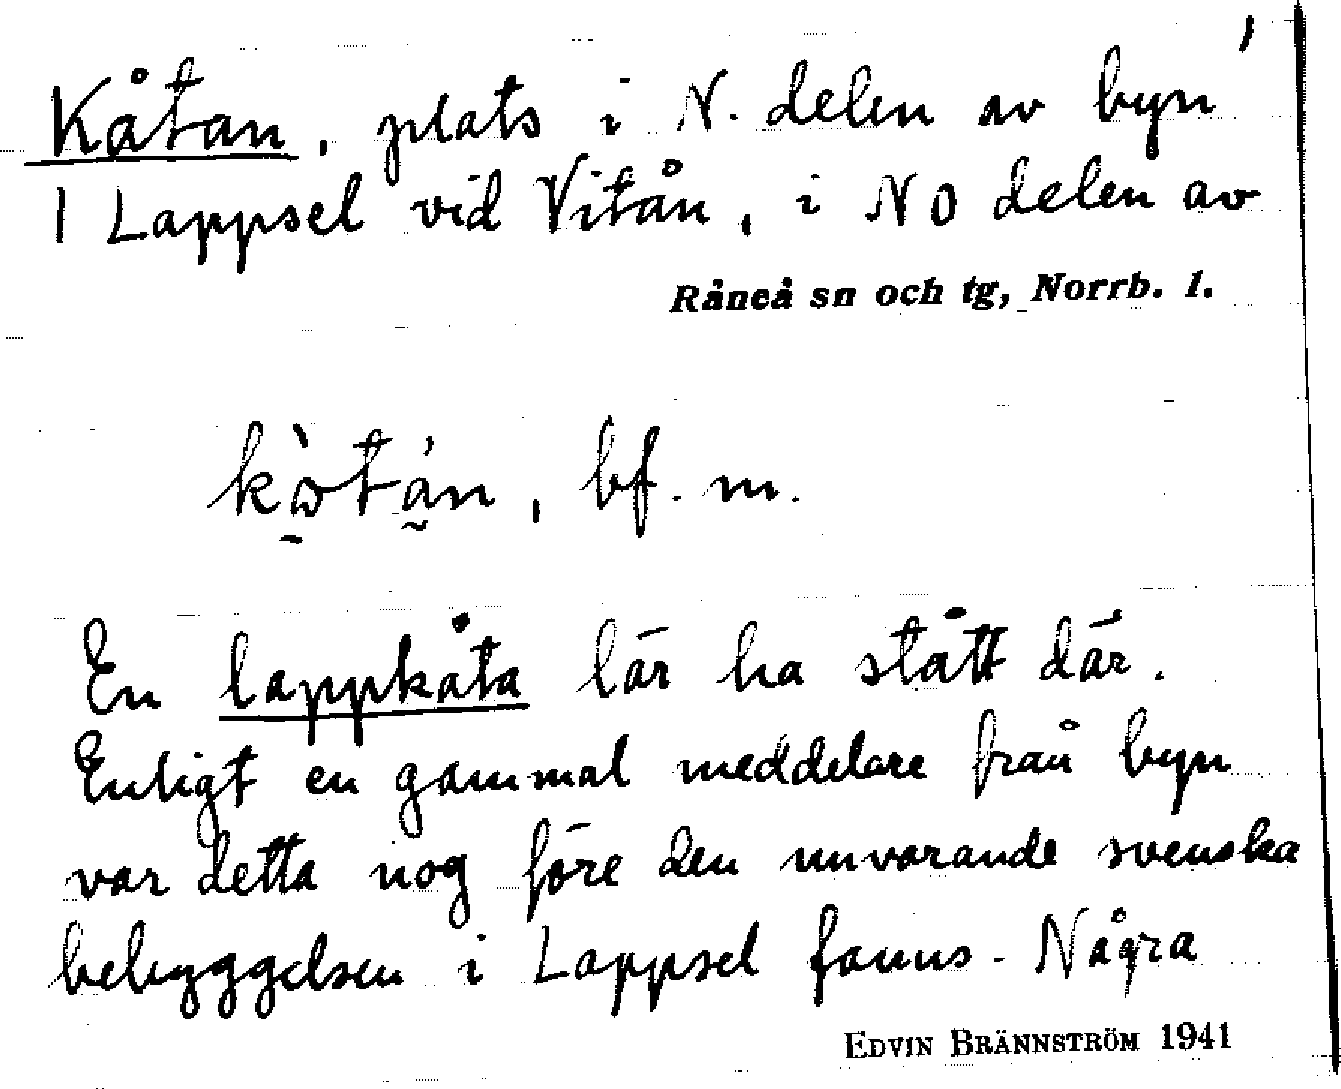 Kåtan, plats i N. delen av byn
1 Lappsel vid Vitån, i NO delen av
Råneå sn och tg, Norrb. l.
kɷ̀tán, bf. m.
En lappkåta lär ha stått där.
Enligt en gammal meddelare från byn
var detta nog före den nuvarande svenska
bebyggelsen i Lappsel fanns. Några
EDVIN BRÄNNSTRÖM 1941